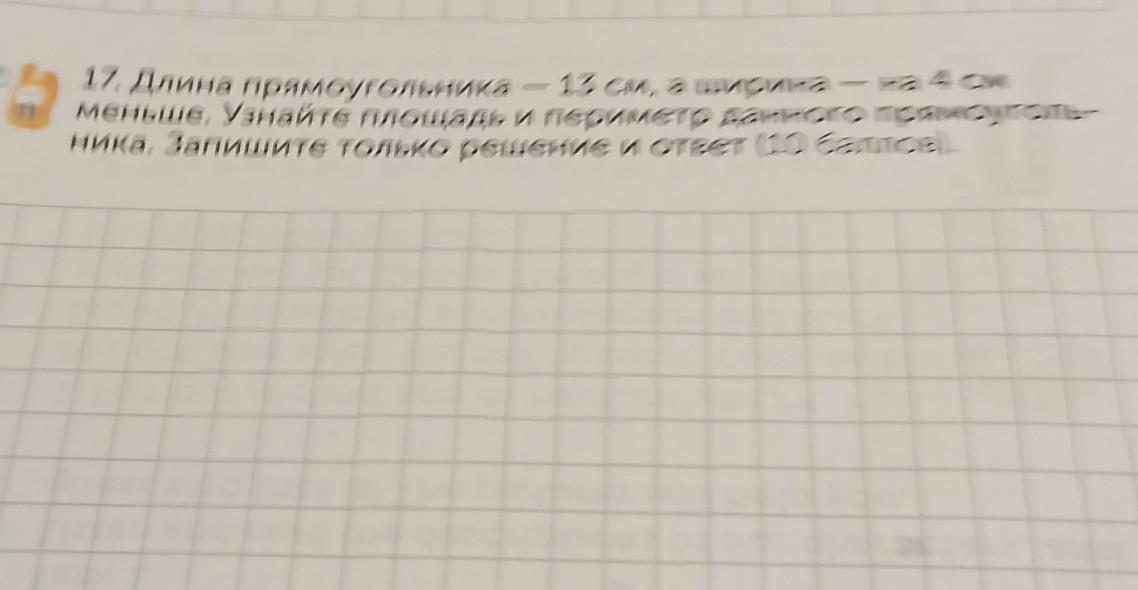 17. Длина прямоугольника — 13 см, а ширина — на 4 см
меньше. Узнайте площадь и периметр данного прямоуголь-
ника. Запишите только решение и ответ (10 баллов).